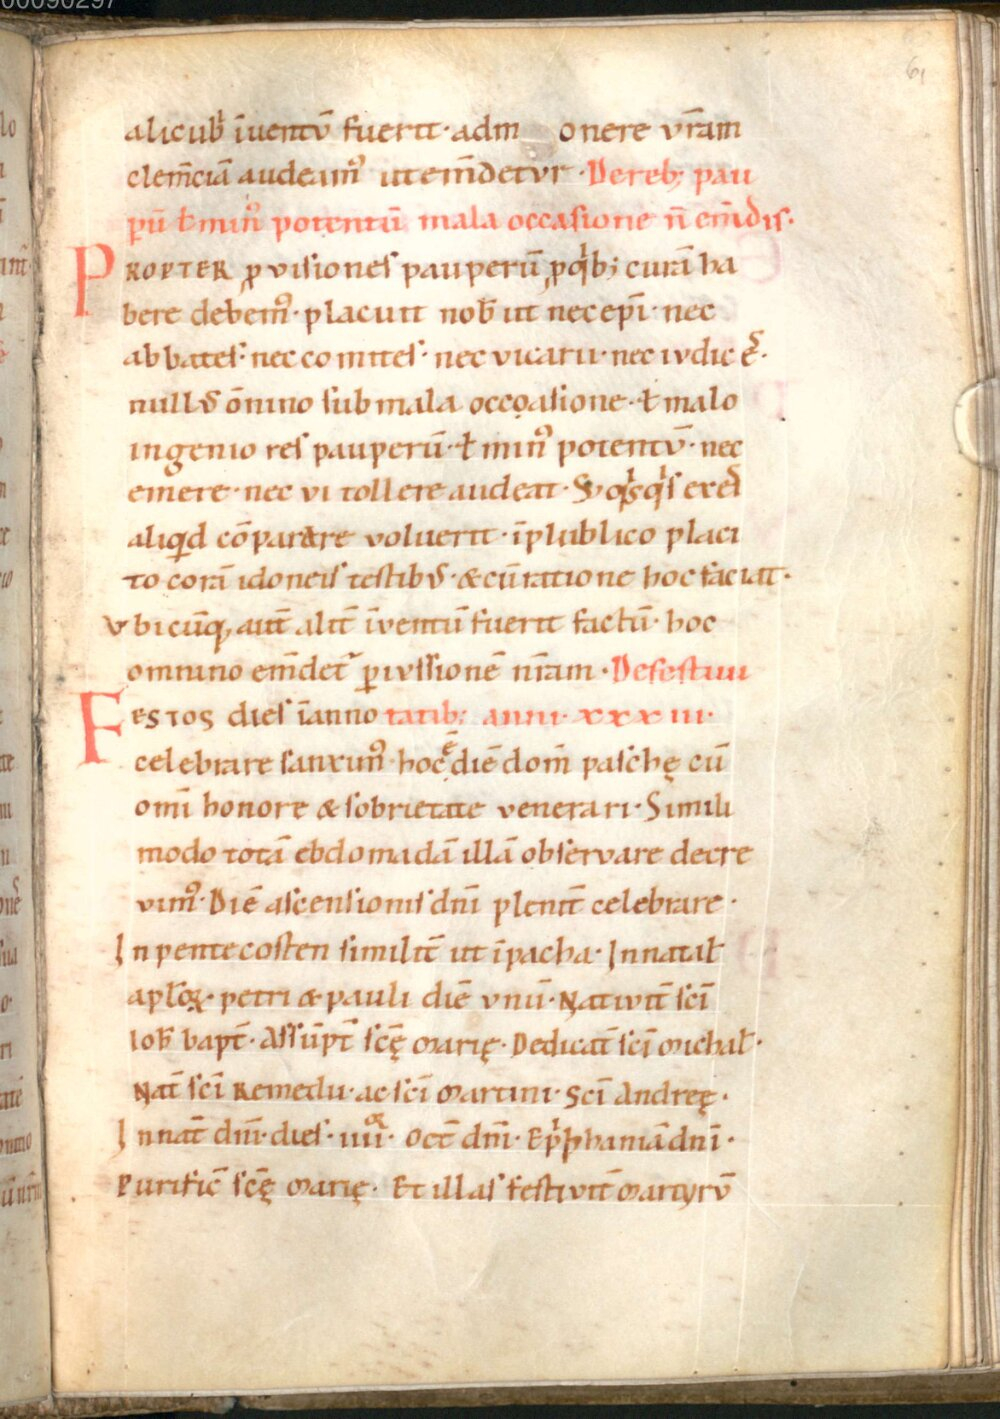 00090297
61
alicub̄ īuentū fuerit· adm onere vr̄am
clem̄ciā audeamꝰ ut em̄detur· De reb; pau
pū ꝉ minꝰ potentū mala occasione n̄ em̄dis·
PROPTER ꝓvisiones pauperū ꝓ qͥb; curā ha
bere debemꝰ· placuit nob̄ ut nec ep̄i· nec
abbates· nec comites· nec vicarii· nec iudicēs·
nullus ōnino sub mala occoasione· ꝉ malo
ingenio res pauperū· ꝉ minꝰ potentū· nec
emere· nec vi tollere audeat· S; qͥsqͥs ex eis
aliqͥd cōparare voluerit· ī plublico placi
to corā idoneis testibus· & cū ratione hoc faciat·
Vbicūq; aut̄ alit̄ īventū fuerit factū· hoc
omnino em̄det̄ ꝑ iussionē nr̄am· De festiui
FESTOS dies ī anno tatib; anni· xxxiii·
celebrare sanximꝰ· hoc ē diē dom̄ paschę cū
omī honore & sobrietate venerari· Simili
modo totā ebdomadā illā observare decre
vimꝰ· Diē ascensionis dn̄i plenit̄ celebrare·
In pentecosten similit̄ ut ī pacha· In natal̄
apl̄oꝝ· petri & pauli diē unū· Nativit̄ sc̄i
Ioh̄ bapt̄· Assūpt̄ sc̄ę marię· Dedicat̄ sc̄i michal̄·
Nat̄ sc̄i Remedii· ac sc̄i martini· Sc̄i Andreę·
In nat̄ dn̄i· dies· iiii· Oct̄ dn̄i· Epiphaniā dn̄i·
Purific̄ sc̄ę marię· Et illas festivit̄ martyrū